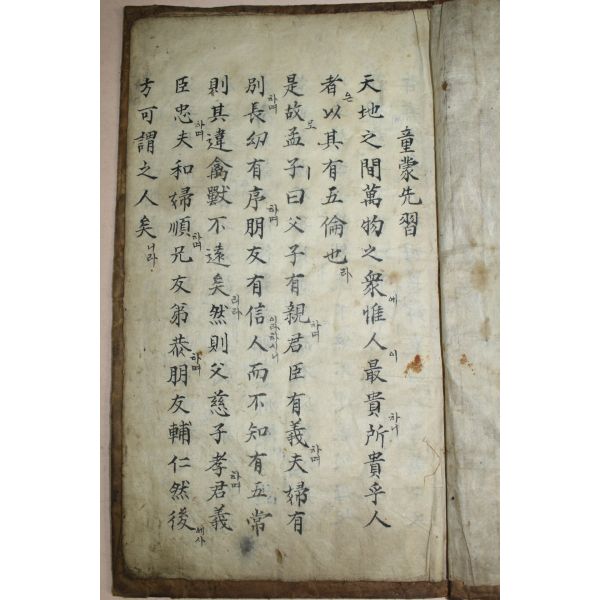 童蒙先習
天地之間萬物之衆에惟人이最貴하니所貴乎人
者는以其有五倫也라
是故로孟子ㅣ曰父子有親하며君臣有義하며夫婦有
別하며長幼有序하며朋友有信이라하시니人而不知有五常
則其違禽獸不遠矣리라然則父慈子孝하며君義
臣忠하며夫和婦順하며兄友弟恭하며朋友輔仁然後에사
方可謂之人矣니라